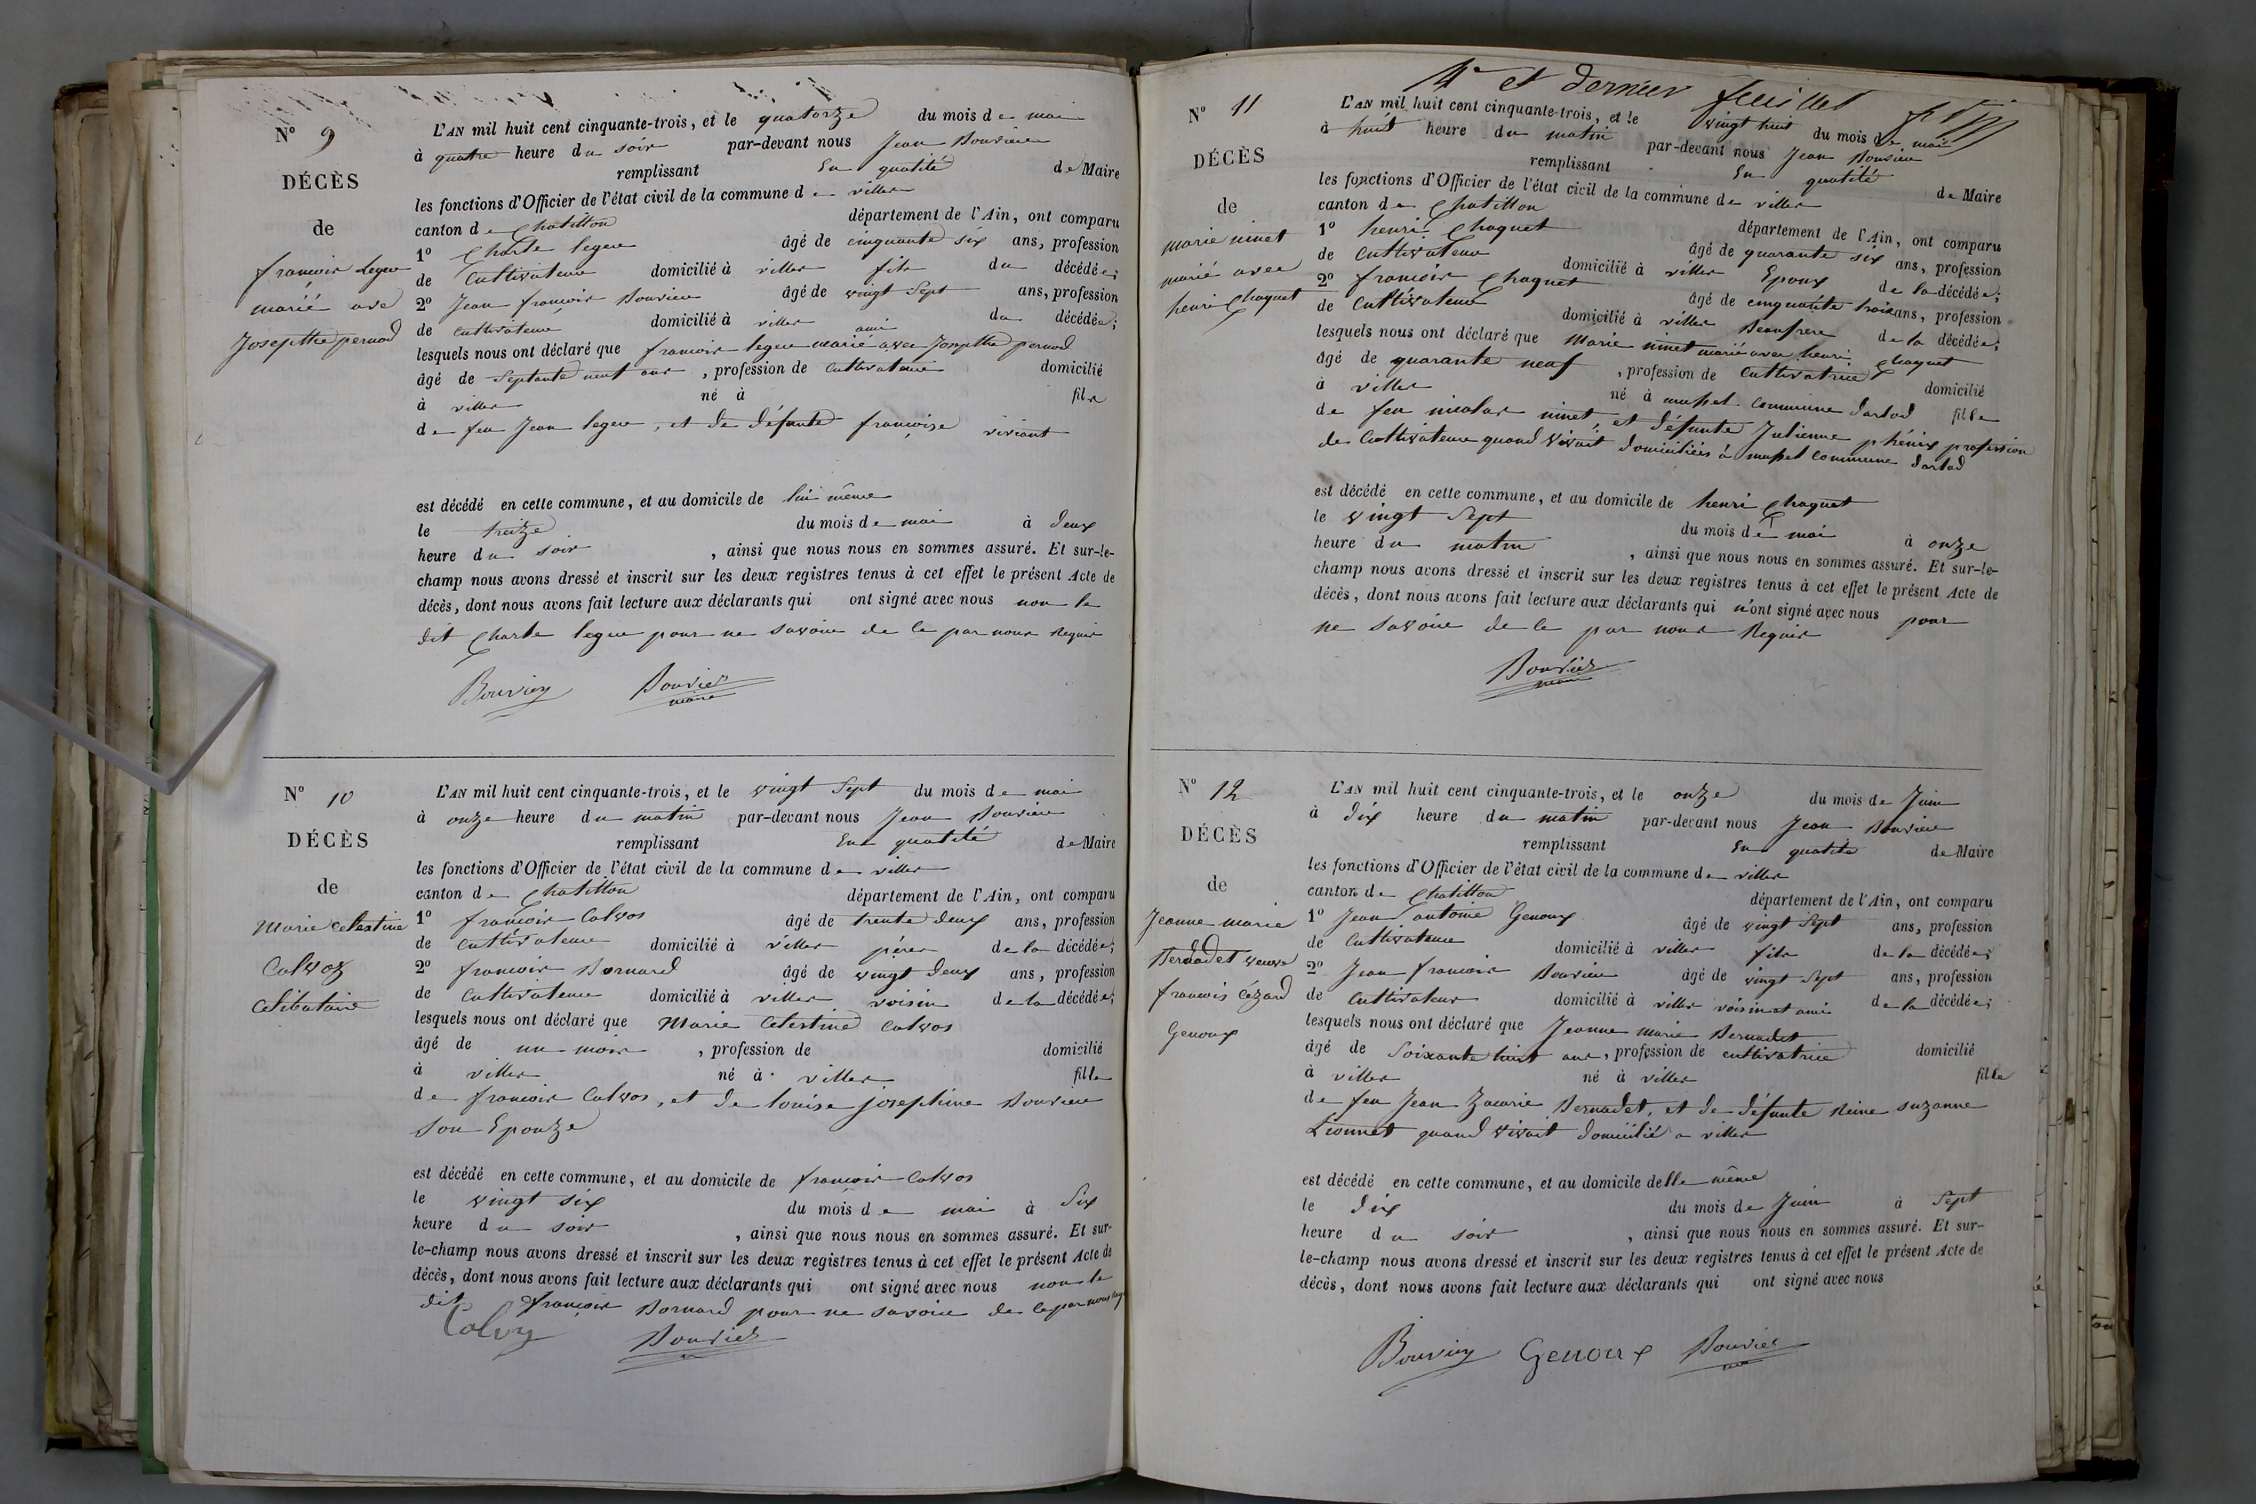 N° 9
DÉCÈS
de
françois Legeu
marié avec
Josepthe pernod
L'AN mil huit cent cinquante-trois, et le quatorze du mois de mai
à quatre heure du soir par-devant nous Jean Bouvier
remplissant En qualité de Maire
les fonctions d'Officier de l'état civil de la commune de villes
canton de Chatillon département de l'Ain, ont comparu
1° Charle legeu âgé de cinquante six ans, profession
de Cultivateur domicilié à villes fils du décédé;
2° Jean françois Bouvier âgé de vingt Sept ans, profession
de cultivateur domicilié à villes ami du décédé;
lesquels nous ont déclaré que françois legeu marié avec Josepthe pernod
âgé de Septante neuf ans, profession de cultivateur domicilié
à villes né à fils
de feu Jean legeu, et de défunte françoise viviant
est décédé en cette commune, et au domicile de lui même
le treize du mois de mai à deux
heure du soir, ainsi que nous nous en sommes assuré. Et sur-le-
champ nous avons dressé et inscrit sur les deux registres tenus à cet effet le présent Acte de
décès, dont nous avons fait lecture aux déclarants qui ont signé avec nous non le
dit Charle legeu pour ne savoir de ce par nous Requis
Bouvier Bouvier
maire
N° 10
DÉCÈS
de
Marie Celestine
Calvoz
Célibataire
L'AN mil huit cent cinquante-trois, et le vingt Sept du mois de mai
à onze heure du matin par-devant nous Jean Bouvier
remplissant En qualité de Maire
les fonctions d'Officier de l'état civil de la commune de villes
canton de Chatillon département de l'Ain, ont comparu
1° françois Calvos âgé de trente deux ans, profession
de Cultivateur domicilié à villes père de la décédée;
2° françois Bornard âgé de vingt deux ans, profession
de Cultivateur domicilié à villes voisin de la décédée;
lesquels nous ont déclaré que Marie Celestine Calvos
âgé de un mois, profession de domicilié
à villes né à villes fille
de françois Calvos, et de louise josephine Bouvier
Son Epouze
est décédé en cette commune, et au domicile de françois Calvos
le vingt six du mois de mai à Six
heure du soir, ainsi que nous nous en sommes assuré. Et sur-
le-champ nous avons dressé et inscrit sur les deux registres tenus à cet effet le présent Acte de
décès, dont nous avons fait lecture aux déclarants qui ont signé avec nous non le
dit françois Bornard pour ne savoir de ce par nous
Bouvier
4e et dernier feuillet
N° 11
DÉCÈS
de
marie ninet
marié avec
henri Chaquet
L'AN mil huit cent cinquante-trois, et le vingt huit du mois de mai
à huit heure du matin par-devant nous Jean Bouvier
remplissant En qualité de Maire
les fonctions d'Officier de l'état civil de la commune de villes
canton de Chatillon département de l'Ain, ont comparu
1° henri Chaquet âgé de quarante six ans, profession
de Cultivateur domicilié à villes Epoux de la décédée;
2° françois Chaquet âgé de cinquante trois ans, profession
de Cultivateur domicilié à villes Beaufrere de la décédée;
lesquels nous ont déclaré que Marie ninet marié avec henri Chaquet
âgé de quarante neuf, profession de Cultivatrice domicilié
à villes né à mussel commune darlod fille
de feu nicolas ninet, et défunte Julienne phénix profession
de Cultivateur quand vivait domiciliés à mussel commune darlod
est décédé en cette commune, et au domicile de henri Chaquet
le vingt Sept du mois de mai à onze
heure du matin, ainsi que nous nous en sommes assuré. Et sur-le-
champ nous avons dressé et inscrit sur les deux registres tenus à cet effet le présent Acte de
décès, dont nous avons fait lecture aux déclarants qui n'ont signé avec nous pour
ne savoir de ce par nous Requis
Bouvier
maire
N° 12
DÉCÈS
de
Jeanne marie
Bernadet veuve
françois Cézard
Genoux
L'AN mil huit cent cinquante-trois, et le onze du mois de Juin
à dix heure du matin par-devant nous Jean Bouvier
remplissant En qualité de Maire
les fonctions d'Officier de l'état civil de la commune de villes
canton de Chatillon département de l'Ain, ont comparu
1° Jean antoine Genoux âgé de vingt Sept ans, profession
de Cultivateur domicilié à villes fils de la décédée;
2° Jean françois Bouvier âgé de vingt Sept ans, profession
de Cultivateur domicilié à villes voisin et ami de la décédée;
lesquels nous ont déclaré que Jeanne marie Bernadet
âgé de Soixante huit ans, profession de cultivatrice domicilié
à villes né à villes fille
de feu Jean Zacarie Bernadet, et de défunte Reine suzanne
Lionnet quand vivait domicilié a villes
est décédé en cette commune, et au domicile delle même
le dix du mois de Juin à Sept
heure du soir, ainsi que nous nous en sommes assuré. Et sur-
le-champ nous avons dressé et inscrit sur les deux registres tenus à cet effet le présent Acte de
décès, dont nous avons fait lecture aux déclarants qui ont signé avec nous
Bouvier Genoux Bouvier